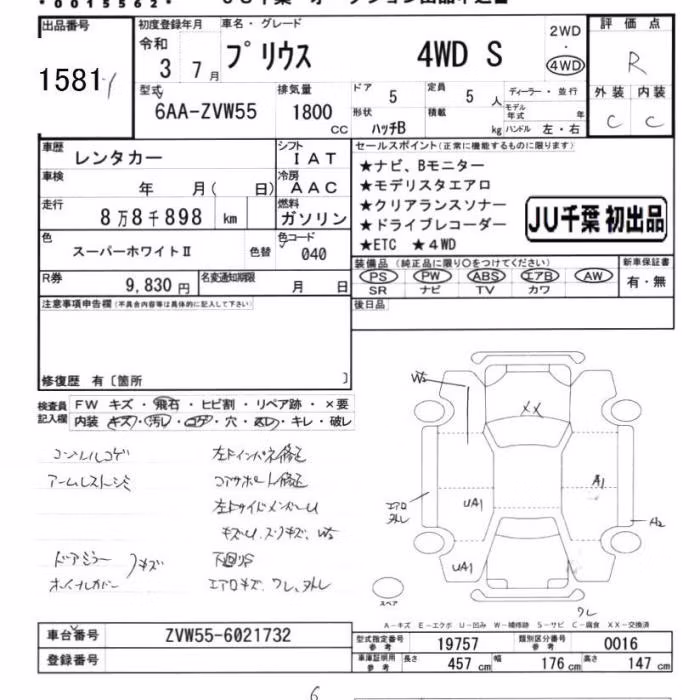 0015562
出品番号 初度登録年月 車名・グレード 評価点
1581
令和 3 7月 プリウス 4WD S 2WD・4WD R
型式 排気量 ドア 5 定員 5人 ディーラー・並行 外装 内装
6AA-ZVW55 1800cc 形状 ハッチB 積載 kg モデル年式 年 C C
ハンドル 左・右
車歴 レンタカー シフト IAT セールスポイント(正常に機能するものに限ります)
車検 年 月( 日) 冷房 AAC ★ナビ、Bモニター
★モデリスタエアロ
走行 8万8千898 km 燃料 ガソリン ★クリアランスソナー
★ドライブレコーダー
★ETC ★4WD
JU千葉 初出品
色 スーパーホワイトⅡ 色替 色コード 040
装備品(純正品に限り○をつけてください) 新車保証書
PS PW ABS エアB AW 有・無
SR ナビ TV カワ
R券 9,830円 名変通知期限 月 日
注意事項申告欄(不具合内容等は具体的に記入して下さい) 後日品
修復歴 有〔箇所 〕
検査員記入欄 FW キズ・飛石・ヒビ割・リペア跡・×要
内装 キズ・汚レ・コゲ・穴・スレ・キレ・破レ
コンソルコゲ 左Fインパネ修正
アームレストシミ コアサポート修正
左Fサイドメンバーu
キズU、スリキズ、W5
ドアミラー 下回りS
ホイルカバー キズ エアロキズ、ワレ、外レ
W5
XX
A1
エアロ外レ
UA1
A2
UA1
スペア
ワレ
A-キズ E-エクボ U-凹み W-補修跡 S-サビ C-腐食 XX-交換済
車台番号 ZVW55-6021732 型式指定番号 参考 19757 類別区分番号 参考 0016
登録番号 車庫証明用 参考 長さ 457cm 幅 176cm 高さ 147cm
6